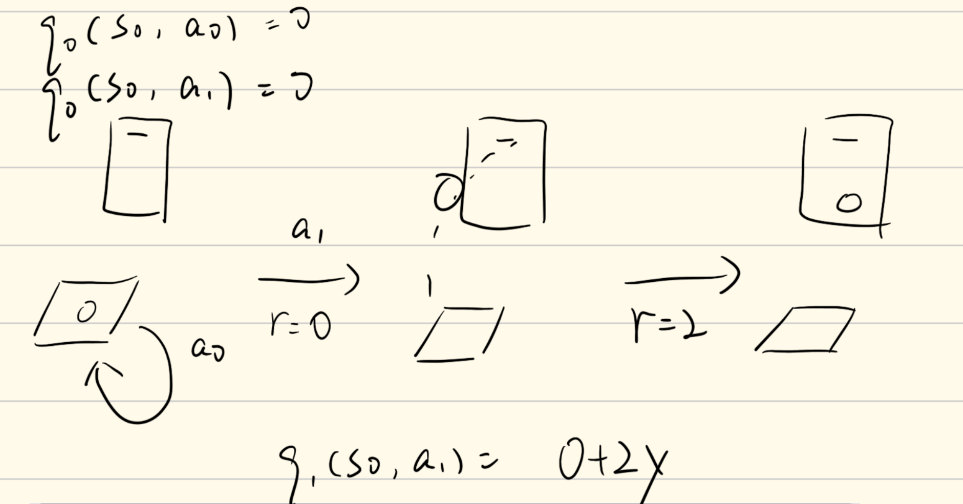 q₀(s₀, a₀) = 0
q₀(s₀, a₁) = 0
a₁
r=0
r=2
a₀
q₁(s₀, a₁) = 0+2γ